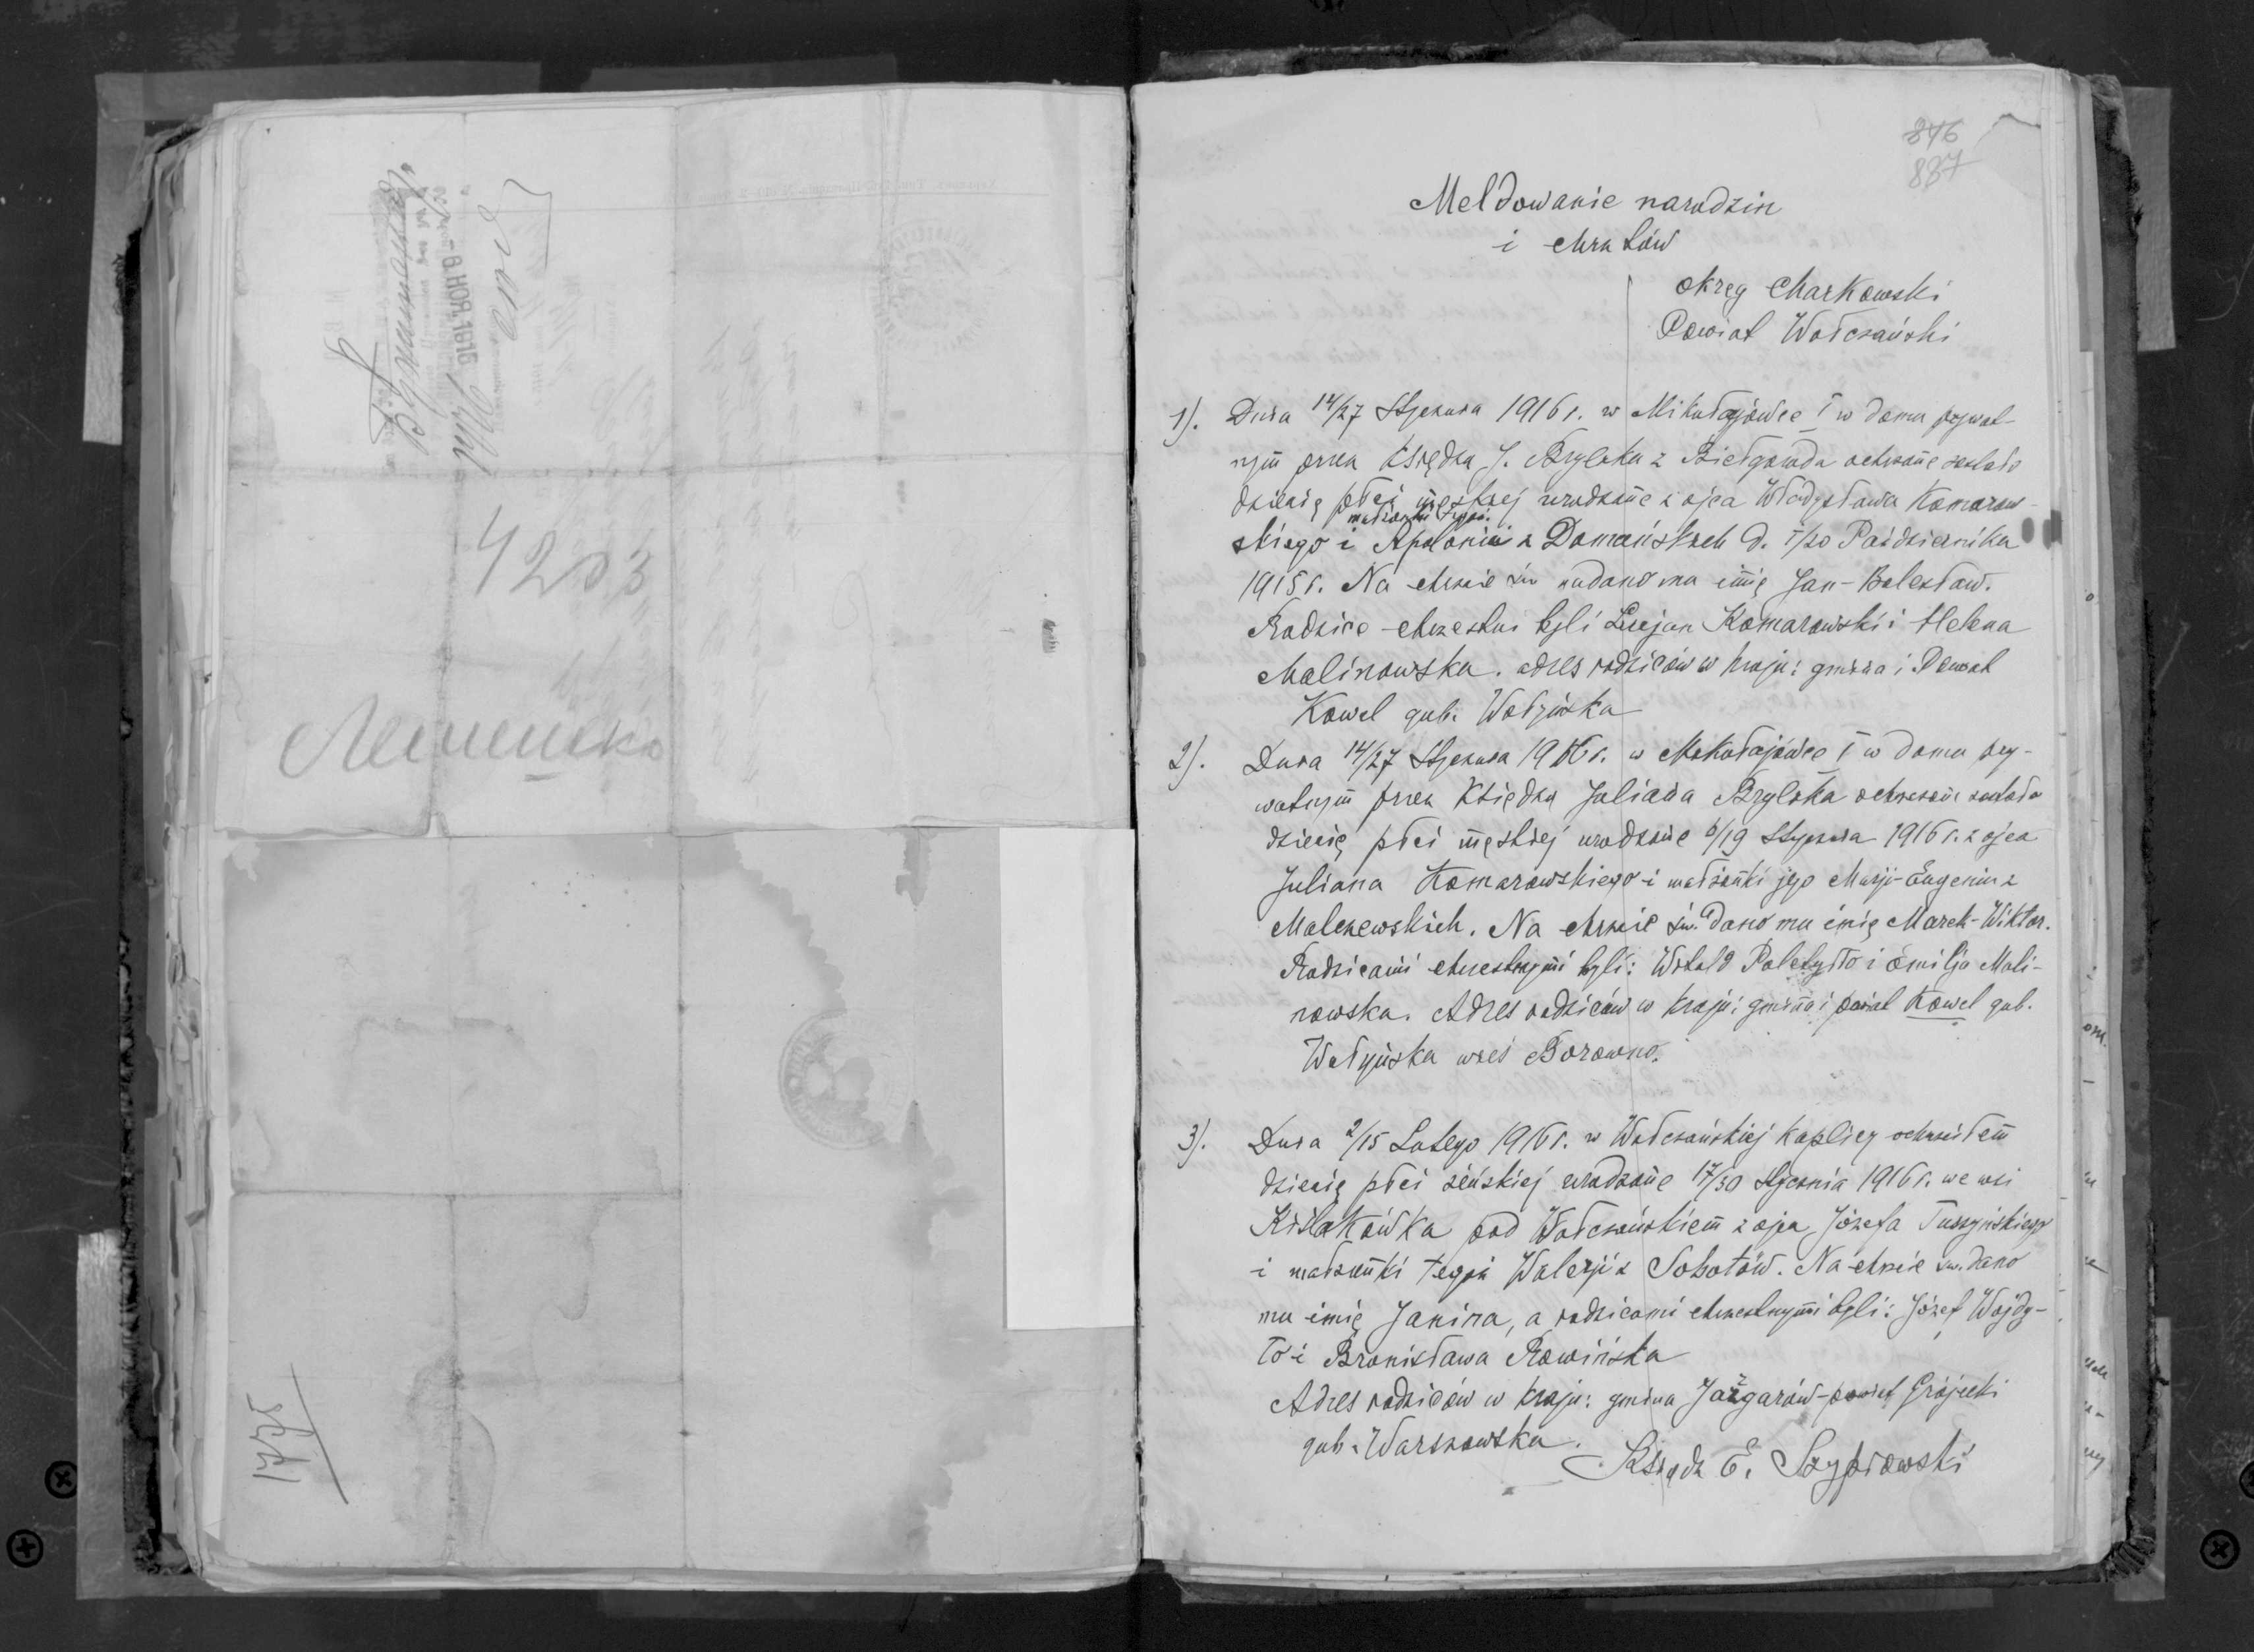 4203
Лещенско
1775
846
837
Meldowanie narodzin
i chrztów
okręg Charkowski
Powiat Wołczański
1). Dnia 14/27 Stycznia 1916 r. w Mikołajówce I w domu prywat-
nym przez Księdza J. Brylika z Biełgoroda ochrzczone zostało
dziecię płci męskiej urodzone z ojca Władysława Komarow-
małżonki tegoż
skiego i Apolonii z Domańskich d. 7/20 Października
1915 r. Na chrzcie św nadano mu imię Jan-Bolesław.
Rodzice chrzestni byli Lucjan Komarowski i Helena
Malinowska. adres rodziców w kraju: gmina i Powiat
Kowel gub. Wołyńska
2). Dnia 14/27 Stycznia 1916 r. w Mikołajówce I w domu pry-
watnym przez Księdza Juliana Brylika ochrzczone zostało
dziecię płci męskiej urodzone 6/19 Stycznia 1916 r. z ojca
Juliana Komarowskiego i małżonki jego Marji-Eugenii z
Malczewskich. Na chrzcie św. dano mu imię Marek-Wiktor.
Rodzicami chrzestnymi byli: Witold Poletyłło i Emilja Mali-
nowska. Adres rodziców w kraju: gmina i powiat Kowel gub.
Wołyńska wieś Borowno.
3). Dnia 2/15 Lutego 1916 r. w Wołczańskiej kaplicy ochrzciłem
dziecię płci żeńskiej urodzone 17/30 Stycznia 1916 r. we wsi
Kisłakówka pod Wołczańskiem z ojca Józefa Tuszyńskiego
i małżonki tegoż Walerji z Sobotów. Na chrzcie św. dano
mu imię Janina, a rodzicami chrzestnymi byli: Józef Wojdy-
ło i Bronisława Rowińska
Adres rodziców w kraju: gmina Jazgarów powiat Grójecki
gub. Warszawska.
Ksiądz E. Szypiowski